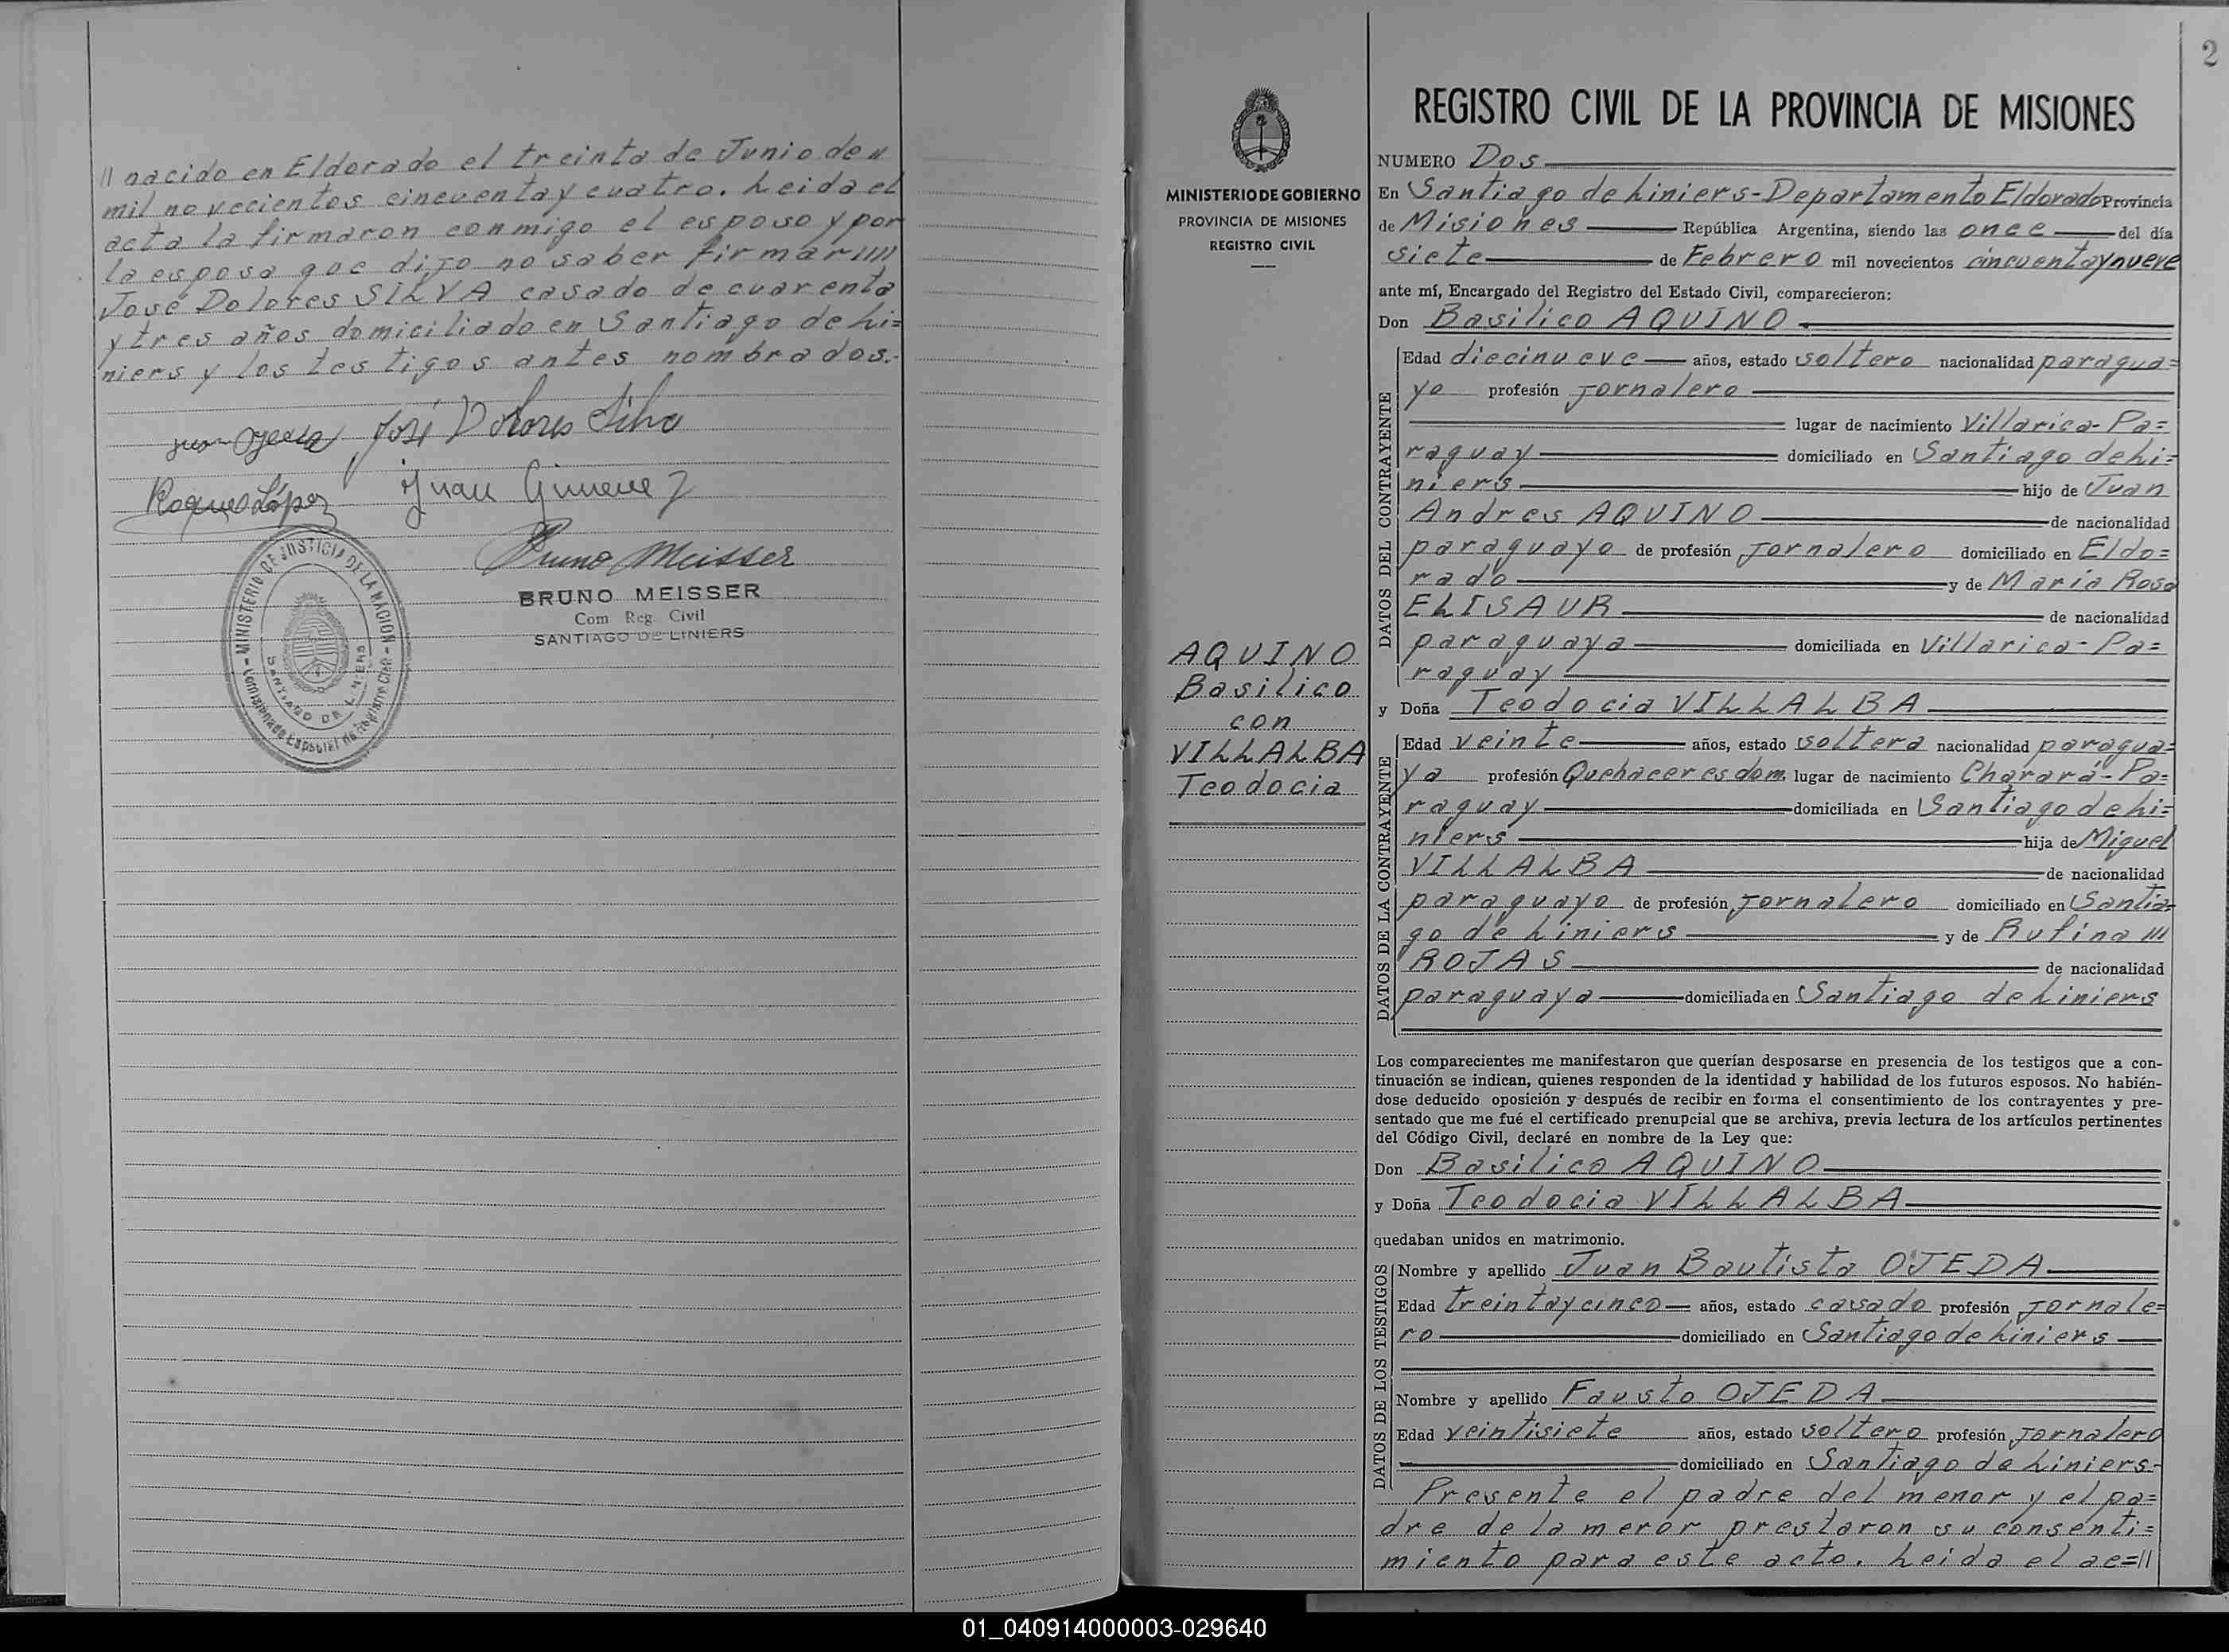 // nacido en Eldorado el treinta de Junio de //
mil novecientos cincuenta y cuatro. Leida el
acta la firmaron conmigo el esposo y por
la esposa que dijo no saber firmar ////
José Dolores SILVA casado de cuarenta
y tres años domiciliado en Santiago de Li=
niers y los testigos antes nombrados.-
José Dolores Silva
Roque López Juan Gimenez
Bruno Meisser
BRUNO MEISSER
Com Reg. Civil
SANTIAGO DE LINIERS
MINISTERIO DE JUSTICIA DE LA NACION
SANTIAGO DE LINIERS
MINISTERIO DE GOBIERNO
PROVINCIA DE MISIONES
REGISTRO CIVIL
AQUINO
Basilico
con
VILLALBA
Teodocia
2
REGISTRO CIVIL DE LA PROVINCIA DE MISIONES
NUMERO Dos
En Santiago de Liniers-Departamento Eldorado Provincia
de Misiones República Argentina, siendo las once del día
siete de Febrero mil novecientos cincuenta y nueve
ante mí, Encargado del Registro del Estado Civil, comparecieron:
Don Basilico AQUINO.
DATOS DEL CONTRAYENTE
Edad diecinueve años, estado soltero nacionalidad paragua=
yo profesión jornalero
lugar de nacimiento Villarica-Pa=
raguay domiciliado en Santiago de Li=
niers hijo de Juan
Andres AQUINO de nacionalidad
paraguayo de profesión jornalero domiciliado en Eldo=
rado y de María Rosa
ELISAUR de nacionalidad
paraguaya domiciliada en Villarica-Pa=
raguay
y Doña Teodocia VILLALBA
DATOS DE LA CONTRAYENTE
Edad veinte años, estado soltera nacionalidad paragua=
ya profesión Quehaceres dom. lugar de nacimiento Charará-Pa=
raguay domiciliada en Santiago de Li=
niers hija de Miguel
VILLALBA de nacionalidad
paraguayo de profesión jornalero domiciliado en Santia=
go de Liniers y de Rufina ///
ROJAS de nacionalidad
paraguaya domiciliada en Santiago de Liniers
Los comparecientes me manifestaron que querían desposarse en presencia de los testigos que a con-
tinuación se indican, quienes responden de la identidad y habilidad de los futuros esposos. No habién-
dose deducido oposición y después de recibir en forma el consentimiento de los contrayentes y pre-
sentado que me fué el certificado prenupcial que se archiva, previa lectura de los artículos pertinentes
del Código Civil, declaré en nombre de la Ley que:
Don Basilico AQUINO
y Doña Teodocia VILLALBA
quedaban unidos en matrimonio.
DATOS DE LOS TESTIGOS
Nombre y apellido Juan Bautista OJEDA
Edad treinta y cinco años, estado casado profesión jornale=
ro domiciliado en Santiago de Liniers
Nombre y apellido Fausto OJEDA
Edad veintisiete años, estado soltero profesión jornalero
domiciliado en Santiago de Liniers.-
Presente el padre del menor y el pa=
dre de la meror prestaron su consenti=
miento para este acto. Leida el ac=//
01_040914000003-029640